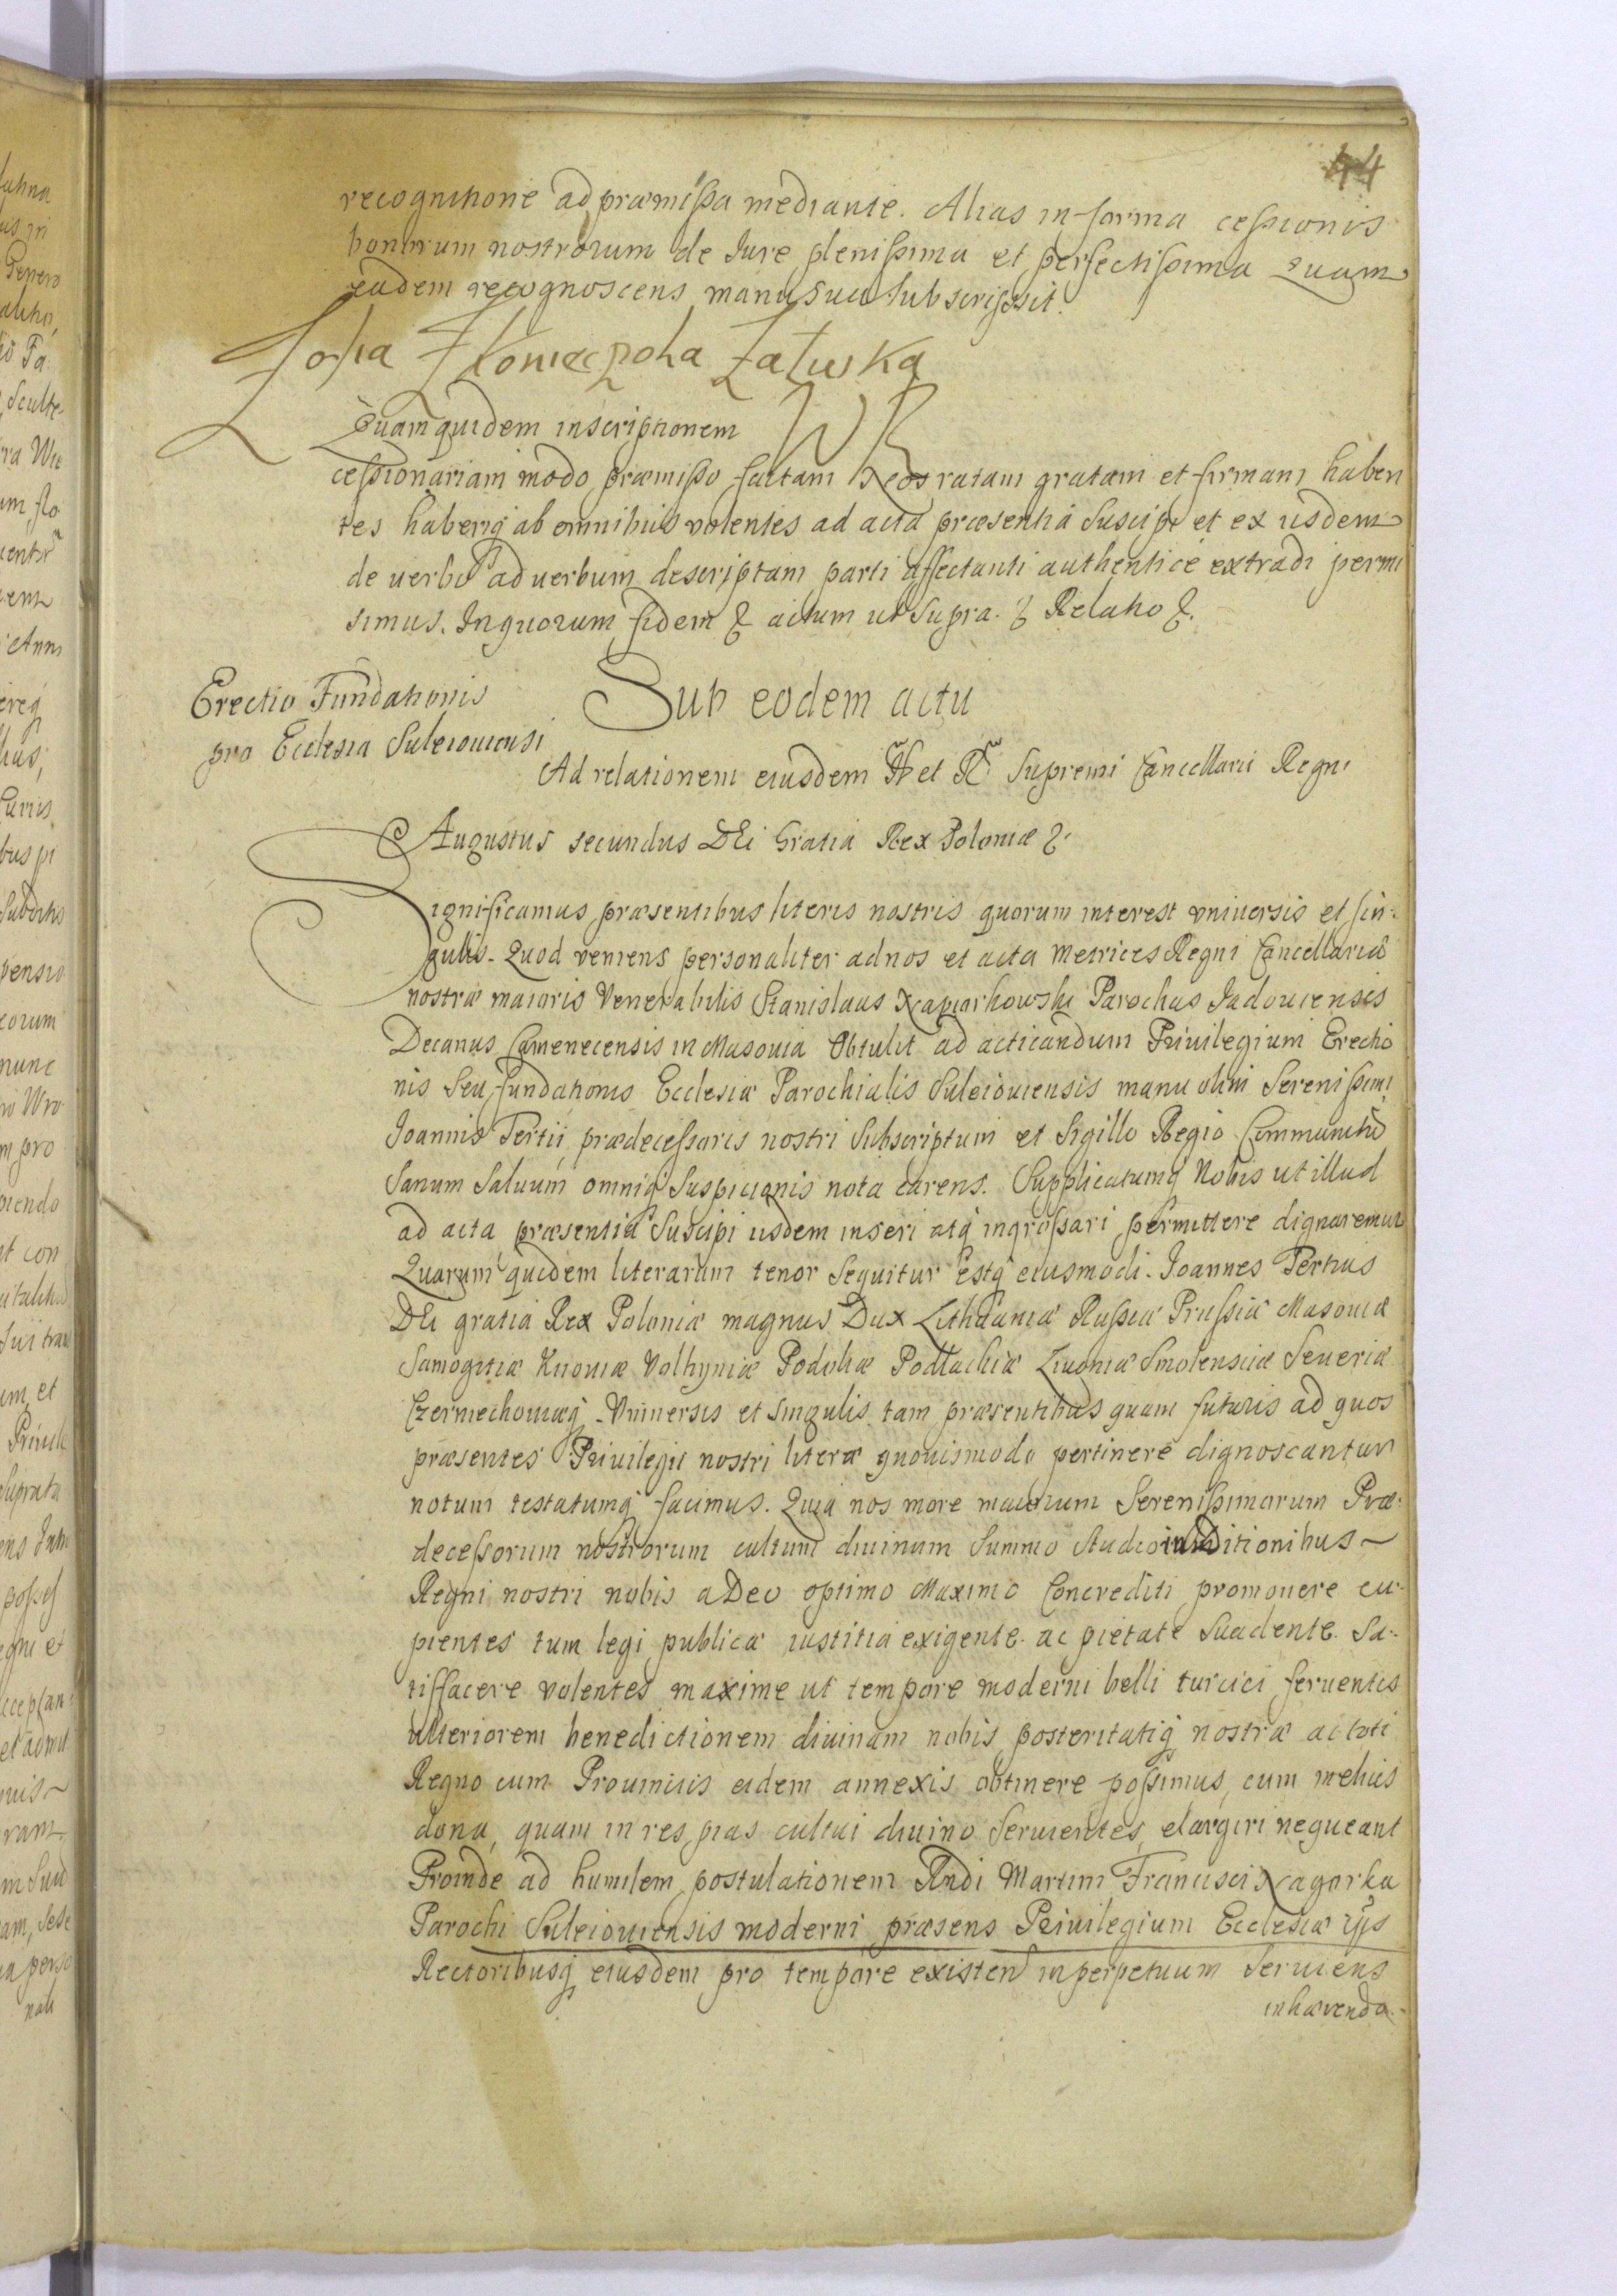 44
recognitione ad præmissa mediante. Alias in forma cessionis
bonorum nostrorum de Iure plenissima et perfectissima quam
eadem recognoscens manu sua subscripsit.
Zofia z Koniecpola Załuska
WK
Quamquidem inscriptionem
cessionariam modo præmisso factam Nos ratam gratam et firmam haben
tes haberiq ab omnibus volentes ad acta præsentia suscipi et ex iisdem
de verbo ad verbum descriptam parti affectanti authenticé extradi permi
simus. In quorum fidem & actum ut supra. & Relatio &.
Erectio Fundationis
pro Ecclesia Suleiouiensi
Sub eodem actu
Ad relationem eiusdem Illmi et Rmi Supremi Cancellarii Regni
Augustus secundus DEi Gratia Rex Poloniæ &.
Significamus præsentibus literis nostris quorum interest vniuersis et sin-
gulis. Quod veniens personaliter ad nos et acta Metrices Regni Cancellariæ
nostræ maioris Venerabilis Stanislaus Parochus Jadouiensis
Decanus Camenecensis in Masouia Obtulit ad acticandum Priuilegium Erectio
nis seu fundationis Ecclesiæ Parochialis Suleiouiensis manu olim Serenissimi
Ioannis Tertii prædecessoris nostri Subscriptum et Sigillo Regio Communitũ
Sanum Saluum omniq Suspicionis nota carens. Supplicatumq Nobis ut illud
ad acta præsentia Suscipi iisdem inseri atq ingrossari permittere dignaremur
Quarum quidem literarum tenor Sequitur Estq eiusmodi. Ioannes Tertius
DEi gratia Rex Poloniæ magnus Dux Lithuaniæ Russiæ Prussiæ Masouiæ
Samogitiæ Kiiouiæ Volhyniæ Podoliæ Podlachiæ Liuoniæ Smolensciæ Seueriæ
Czerniechouiæq. Vniuersis et Singulis tam præsentibus quam futuris ad quos
præsentes Priuilegii nostri literæ quouismodo pertinere dignoscantur
notum testatumq facimus. Quia nos more maiorum Serenissimorum Præ-
decessorum nostrorum cultum diuinum Summo Studio in ditionibus
Regni nostri nobis a Deo optimo Maximo Concrediti promouere cu-
pientes tum legi publicæ iustitia exigente ac pietate Suadente Sa-
tisfacere volentes maxime ut tempore moderni belli turcici feruentis
ulteriorem benedictionem diuinam nobis posteritatiq nostræ ac toti
Regno cum Prouinciis eidem annexis obtinere possimus, cum melius
dona, quam in res pias cultui diuino Seruientes elargiri nequeant
Proinde ad humilem postulationem Rndi Martini Francisci
Parochi Suleiouiensis moderni præsens Priuilegium Ecclesiæ ips
Rectoribusq eiusdem pro tempore existen in perpetuum Seruiens
inhærendo